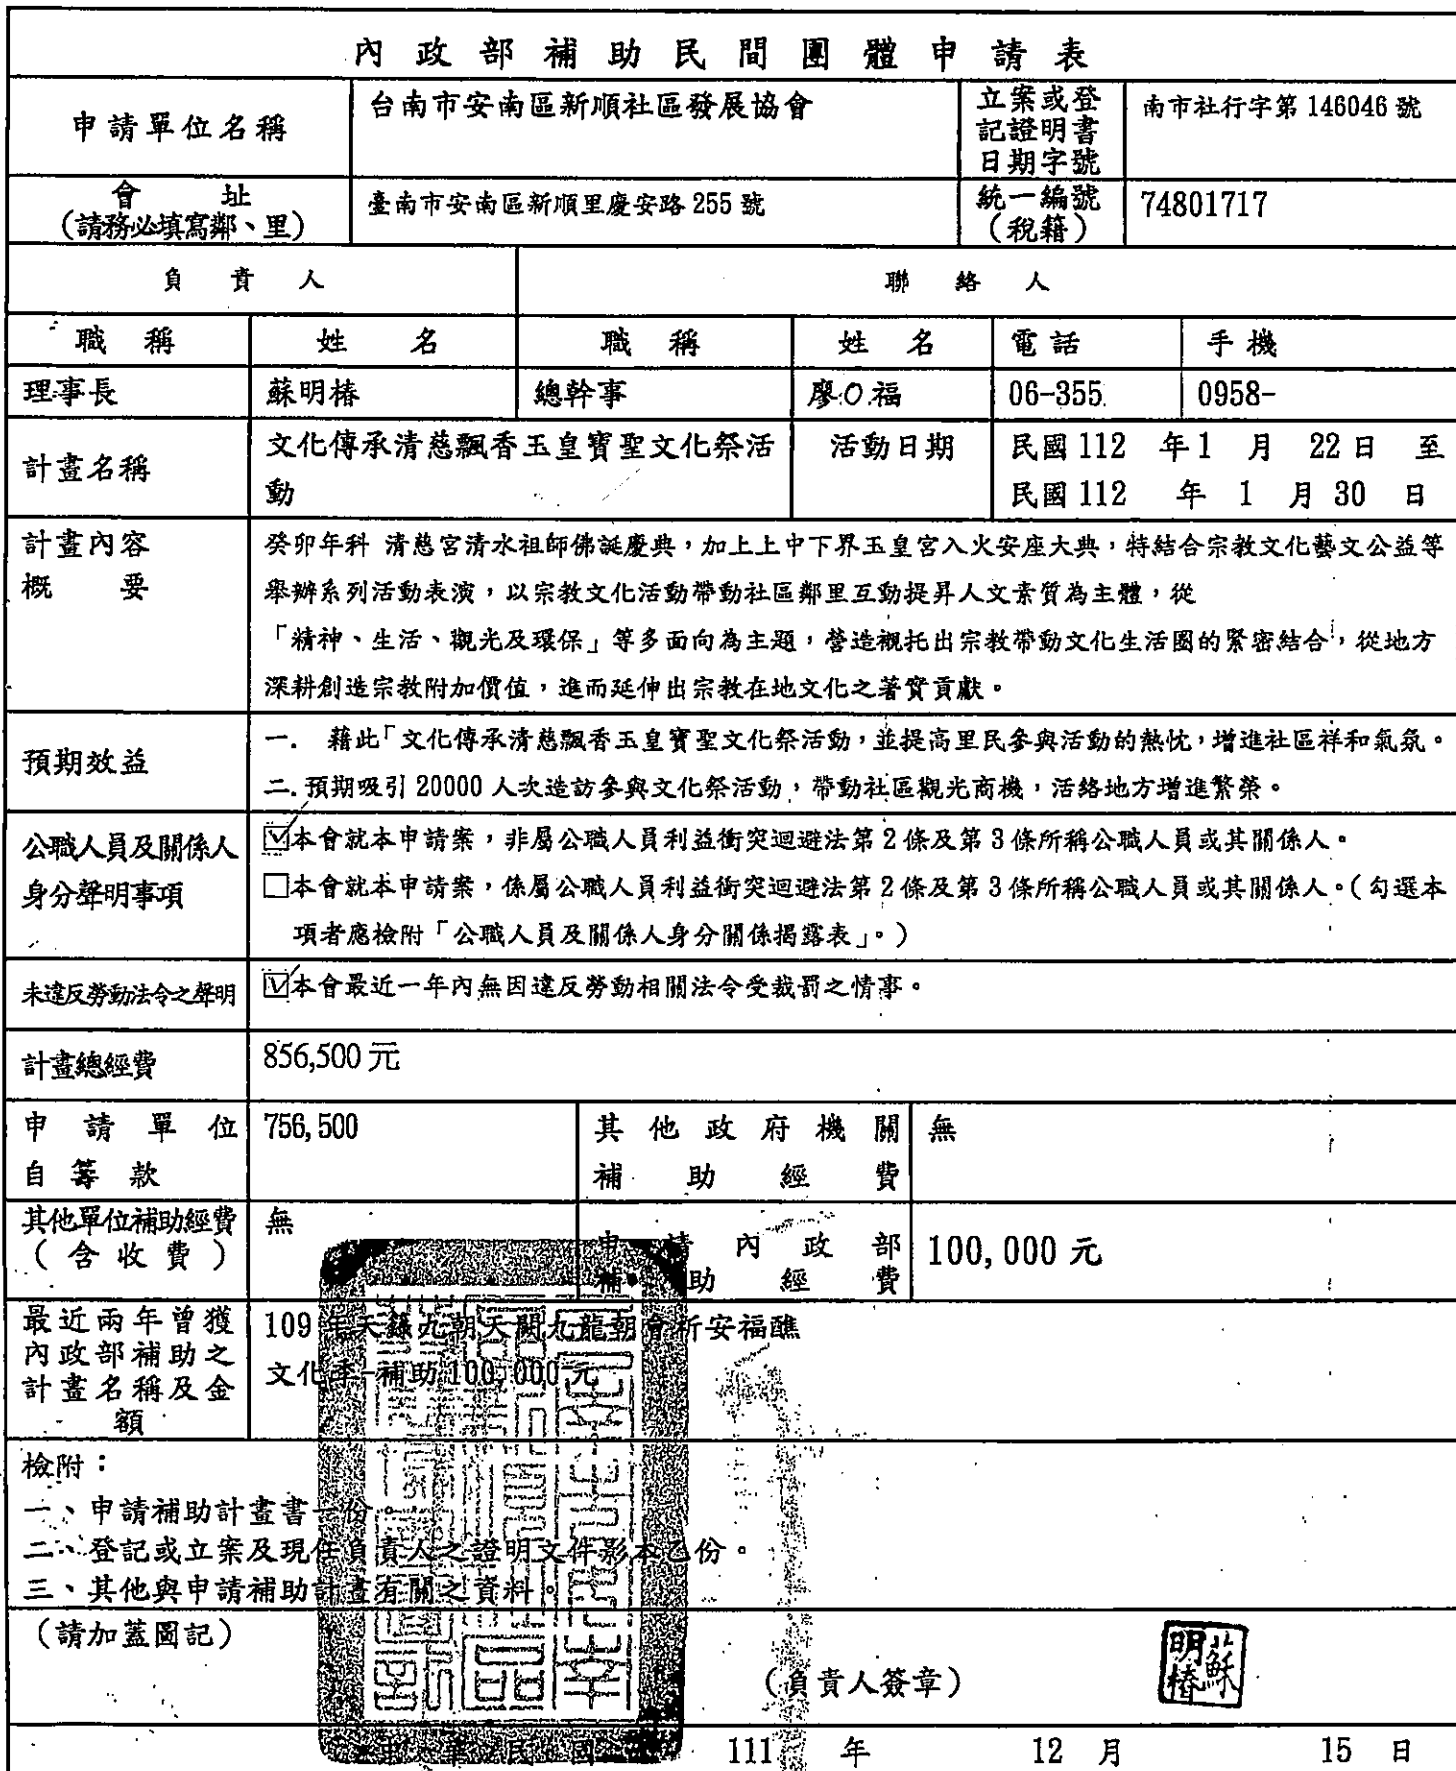 內政部補助民間團體申請表
申請單位名稱
台南市安南區新順社區發展協會
立案或登
記證明書
日期字號
南市社行字第 146046 號
會 址
(請務必填寫鄰、里)
臺南市安南區新順里慶安路 255 號
統一編號
(稅籍)
74801717
負 責 人
聯 絡 人
職 稱
姓 名
職 稱
姓 名
電 話
手 機
理事長
蘇明椿
總幹事
廖O福
06-355
0958-
計畫名稱
文化傳承清慈飄香玉皇寶聖文化祭活
動
活動日期
民國 112 年 1 月 22 日 至
民國 112 年 1 月 30 日
計畫內容
概 要
癸卯年科 清慈宮清水祖師佛誕慶典,加上上中下界玉皇宮入火安座大典,特結合宗教文化藝文公益等
舉辦系列活動表演,以宗教文化活動帶動社區鄰里互動提昇人文素質為主體,從
「精神、生活、觀光及環保」等多面向為主題,營造襯托出宗教帶動文化生活圈的緊密結合,從地方
深耕創造宗教附加價值,進而延伸出宗教在地文化之著實貢獻。
預期效益
一. 藉此「文化傳承清慈飄香玉皇寶聖文化祭活動,並提高里民參與活動的熱忱,增進社區祥和氣氛。
二. 預期吸引 20000 人次造訪參與文化祭活動,帶動社區觀光商機,活絡地方增進繁榮。
公職人員及關係人
身分聲明事項
☑本會就本申請案,非屬公職人員利益衝突迴避法第 2 條及第 3 條所稱公職人員或其關係人。
□本會就本申請案,係屬公職人員利益衝突迴避法第 2 條及第 3 條所稱公職人員或其關係人。(勾選本
項者應檢附「公職人員及關係人身分關係揭露表」。)
未違反勞動法令之聲明
☑本會最近一年內無因違反勞動相關法令受裁罰之情事。
計畫總經費
856,500 元
申請單位
自籌款
756,500
其他政府機關
補助經費
無
其他單位補助經費
(含收費)
無
申請內政部
補助經費
100,000 元
最近兩年曾獲
內政部補助之
計畫名稱及金
額
109 年天錄九朝天闕九龍朝會祈安福醮
文化季-補助 100,000 元
檢附:
一、申請補助計畫書一份。
二、登記或立案及現任負責人之證明文件影本乙份。
三、其他與申請補助計畫有關之資料。
(請加蓋圖記)
(負責人簽章)
蘇明椿
中華民國 111 年 12 月 15 日